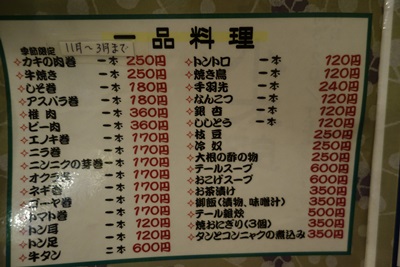 一品料理
季節限定 11月〜3月まで
カキの肉巻 一本 250円
牛焼き 一本 250円
しそ巻 一本 180円
アスパラ巻 一本 180円
椎肉 一本 360円
ピー肉 一本 360円
エノキ巻 一本 170円
ニラ巻 一本 170円
ニンニクの芽巻 一本 170円
オクラ巻 一本 170円
ネギ巻 一本 170円
ゴーヤ巻 一本 170円
トマト巻 一本 170円
トン耳 一本 120円
トン足 一本 120円
牛タン 二本 600円
トントロ 一本 120円
焼き鳥 一本 120円
手羽先 一本 240円
なんこつ 一本 120円
銀杏 一本 120円
ししとう 一本 120円
枝豆 250円
冷奴 250円
大根の酢の物 250円
テールスープ 600円
おこげスープ 600円
お茶漬け 350円
御飯(漬物、味噌汁) 350円
テール雑炊 500円
焼おにぎり(3個) 350円
タンとコンニャクの煮込み 350円